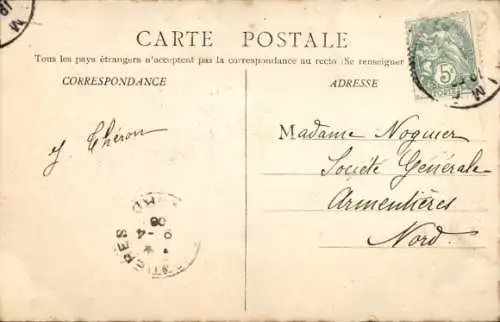 CARTE POSTALE
Tous les pays étrangers n'acceptent pas la correspondance au recto (Se renseigner
CORRESPONDANCE
ADRESSE
5c
J Théron
Madame Noguier
Société Générale
Armentières
Nord.